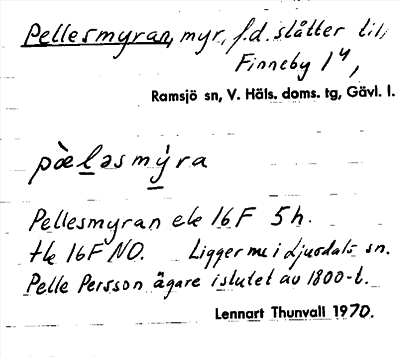 Pellesmyran, myr, f.d. slåtter till
Finneby 1⁴,
Ramsjö sn, V. Häls. doms. tg, Gävl. l.
pæ̀ləsmy̍ra
Pellesmyran ek 16F 5h.
tk 16F NO. Ligger m i Ljusdals sn.
Pelle Persson ägare i slutet av 1800-t.
Lennart Thunvall 1970.